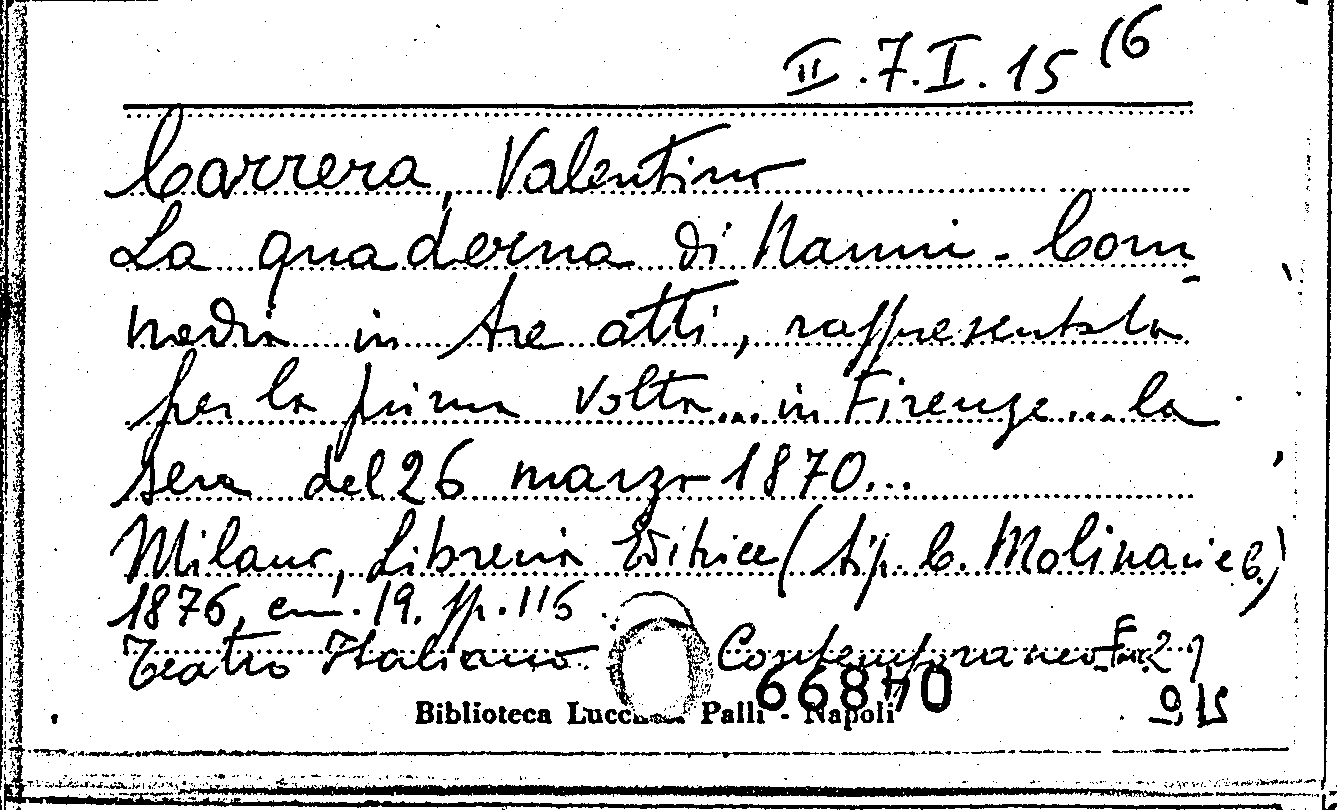 II.7.I.15 (6
Carrera, Valentino
La quaderna di Nanni - Com
media in tre atti, rappresentata
per la prima volta... in Firenze... la
sera del 26 marzo 1870...
Milano, Libreria Editrice (tip. C. Molinari e C.)
1876, cm. 19. pp. 116
Teatro Italiano Contemporaneo Fasc. 21
66840
Biblioteca Lucchesi Palli - Napoli